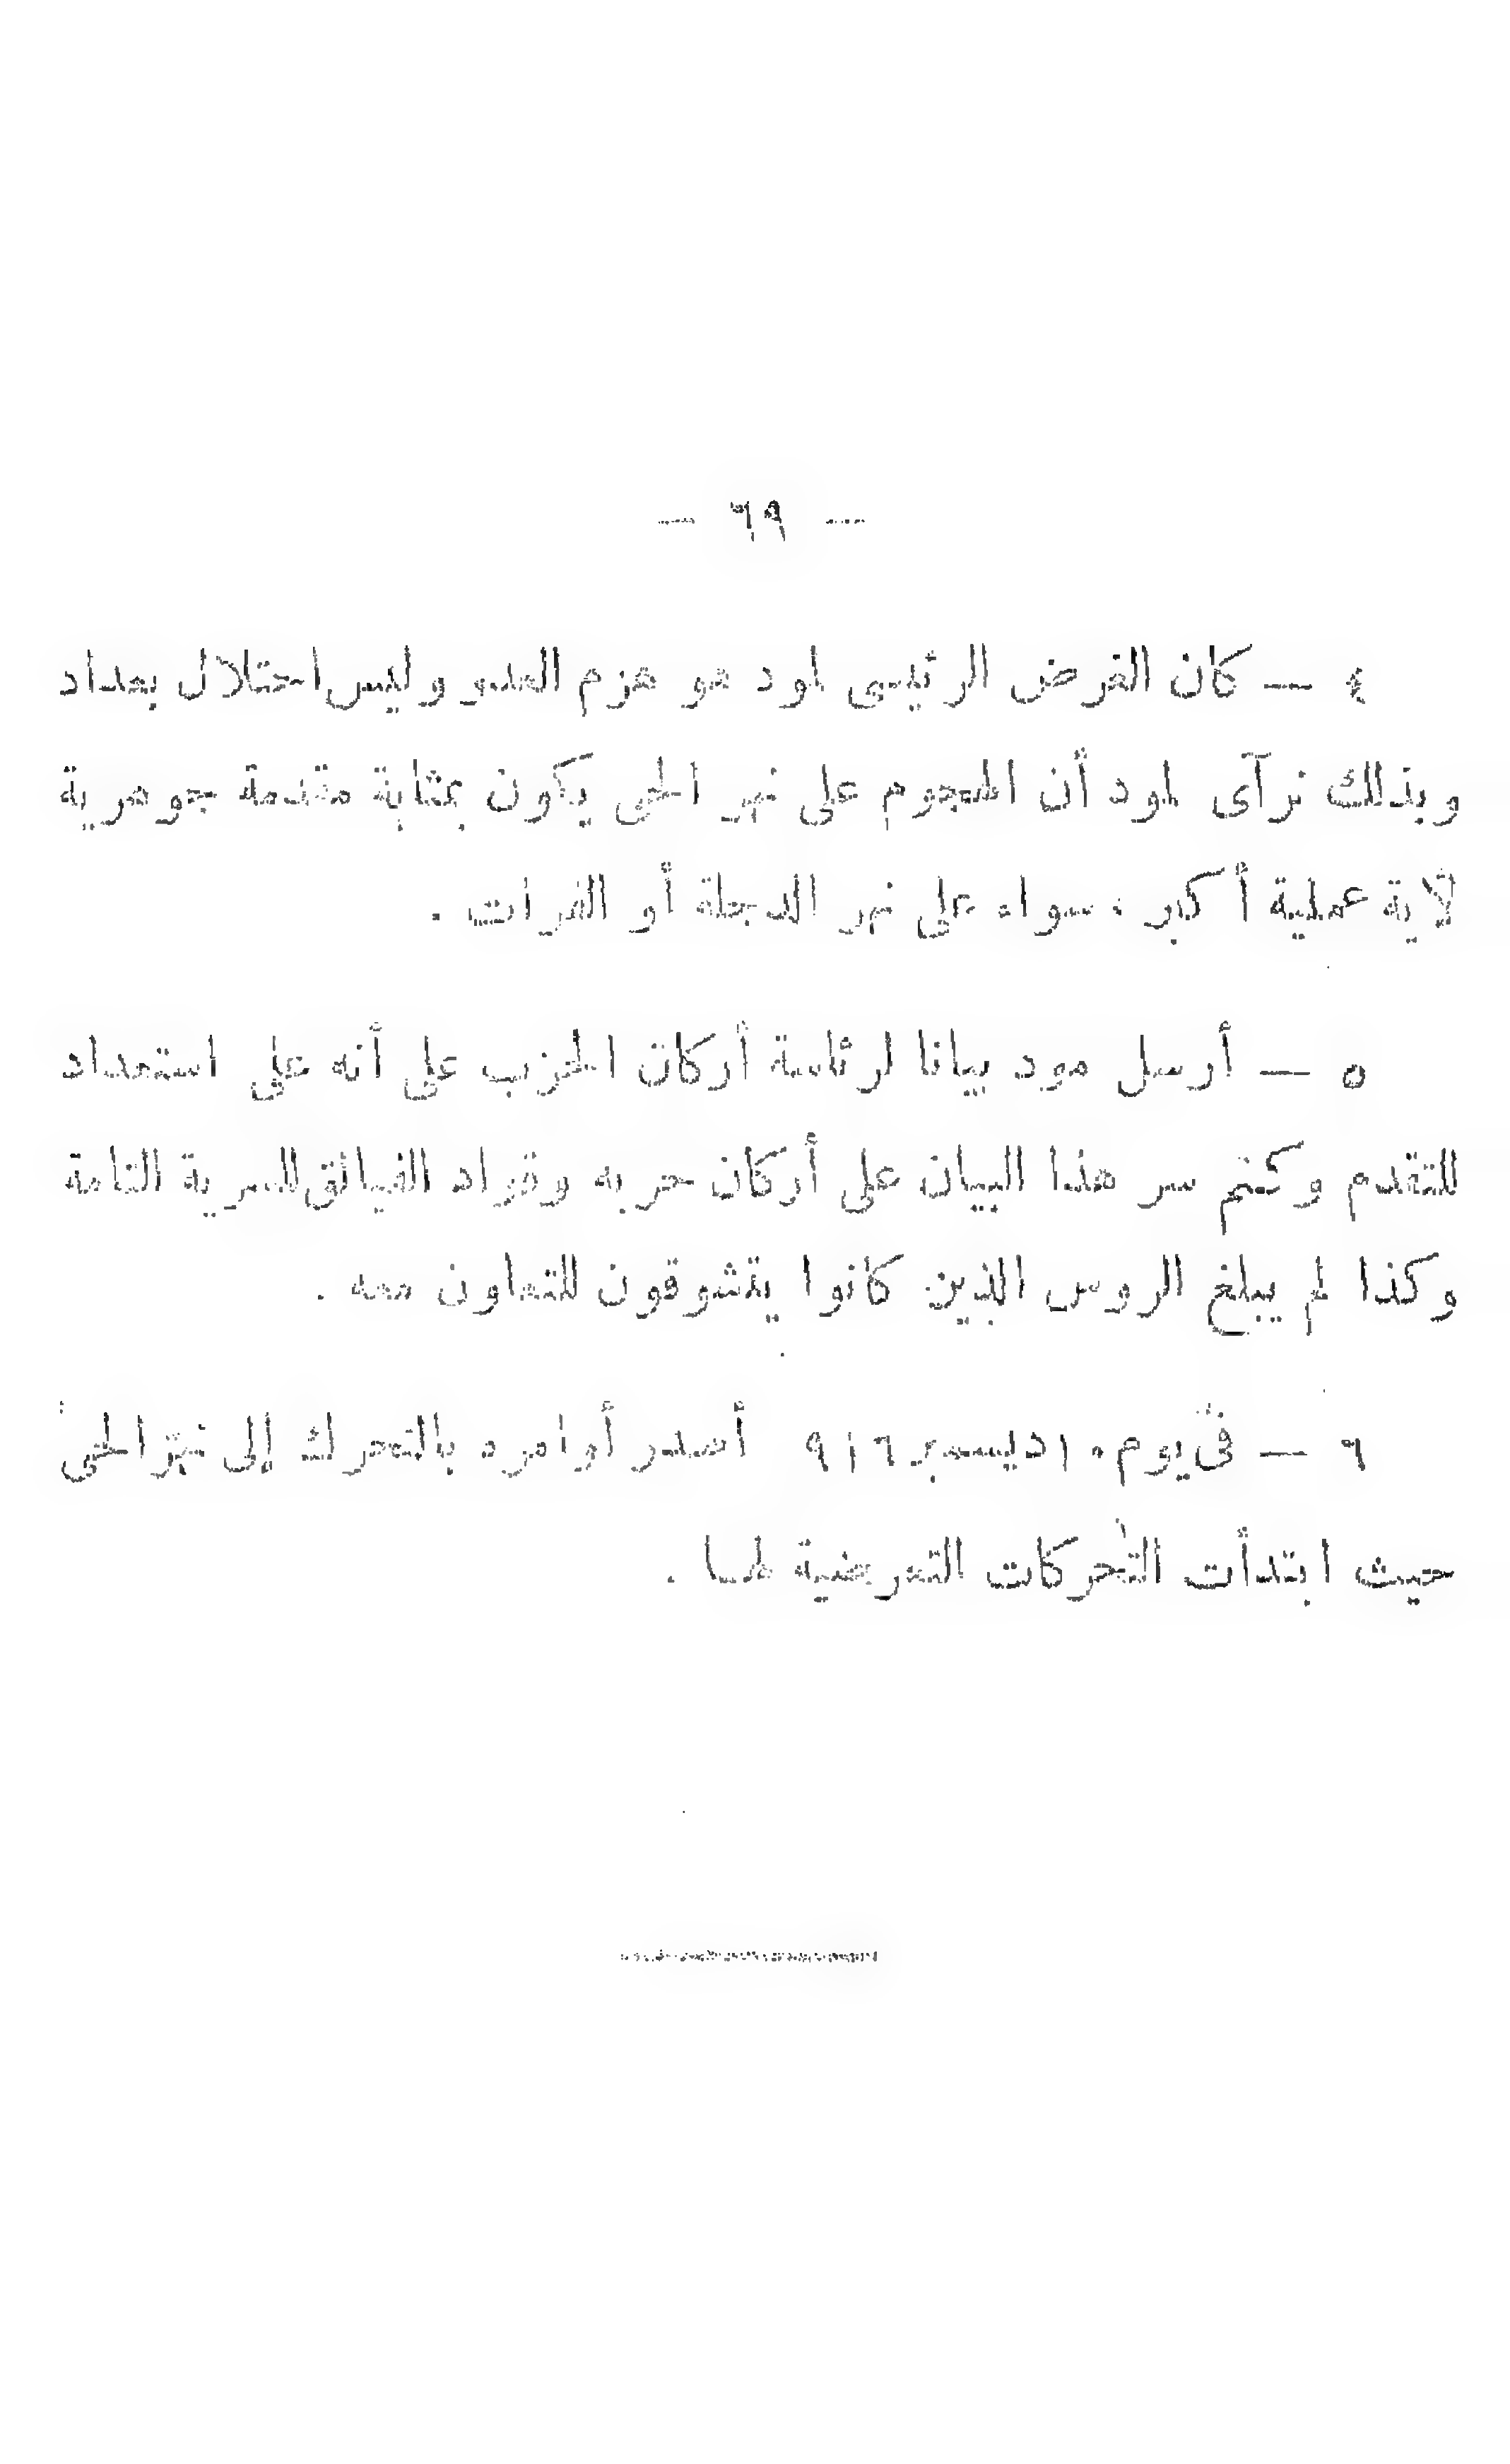 — ٦٩ —
٤ — كان الغرض الرئيسى لمود هو هزم العدو وليس احتلال بغداد
وبذلك نرآى لمود أن الهجوم على نهر الحى يكون بمثابة مقدمة جوهرية
لأية عملية أكبر ، سواء على نهر الدجلة أو الفرات .
٥ — أرسل مود بيانا لرئاسة أركان الحرب على أنه على استعداد
للتقدم وكتم سر هذا البيان على أركان حربه وقواد الفيالق للسرية التامة
وكذا لم يبلغ الروس الذين كانوا يتشوقون للتعاون معه .
٦ — فى يوم ١٠ ديسمبر ١٩١٦ أصدر أوامره بالتحرك إلى نهر الحى
حيث ابتدأت التحركات التعرضية لهسا .